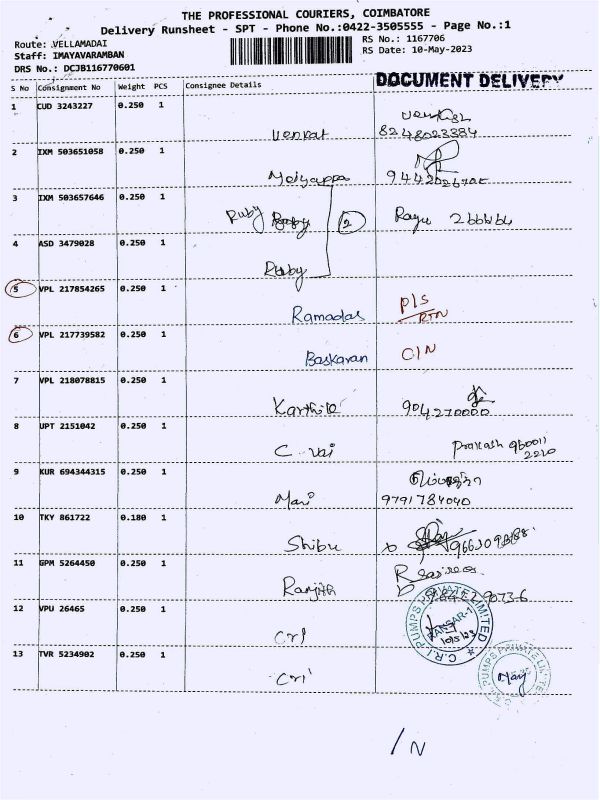 THE PROFESSIONAL COURIERS, COIMBATORE
Delivery Runsheet - SPT - Phone No.:0422-3505555 - Page No.:1
Route: VELLAMADAI
RS No.: 1167706
Staff: IMAYAVARAMBAN
RS Date: 10-May-2023
DRS No.: DCJB116770601
DOCUMENT DELIVERY
S No Consignment No Weight PCS Consignee Details
1 CUD 3243227 0.250 1
Venkat 8248023384
2 IXM 503651058 0.250 1
Meiyappa
3 IXM 503657646 0.250 1
Ruby 2 Raju 266664
4 ASD 3479028 0.250 1
Ruby
5 VPL 217854265 0.250 1
Ramadas P/S RTN
6 VPL 217739582 0.250 1
Baskaran C/N
7 VPL 218078815 0.250 1
Karthik 904270000
8 UPT 2151042 0.250 1
C. Prakash 960011
2220
9 KUR 694344315 0.250 1
Mari 9791784040
10 TKY 861722 0.180 1
Shibu
11 GPM 5264450 0.250 1
Ranjith
12 VPU 26465 0.250 1
CRI
C.R.I PUMPS PRIVATE LIMITED
13 TVR 5234902 0.250 1
Cri
PUMPS PRIVATE LIMITE
/N